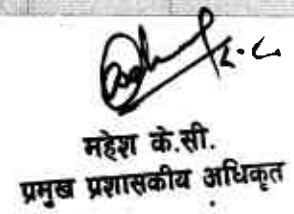 महेश के.सी.
प्रमुख प्रशासकीय अधिकृत